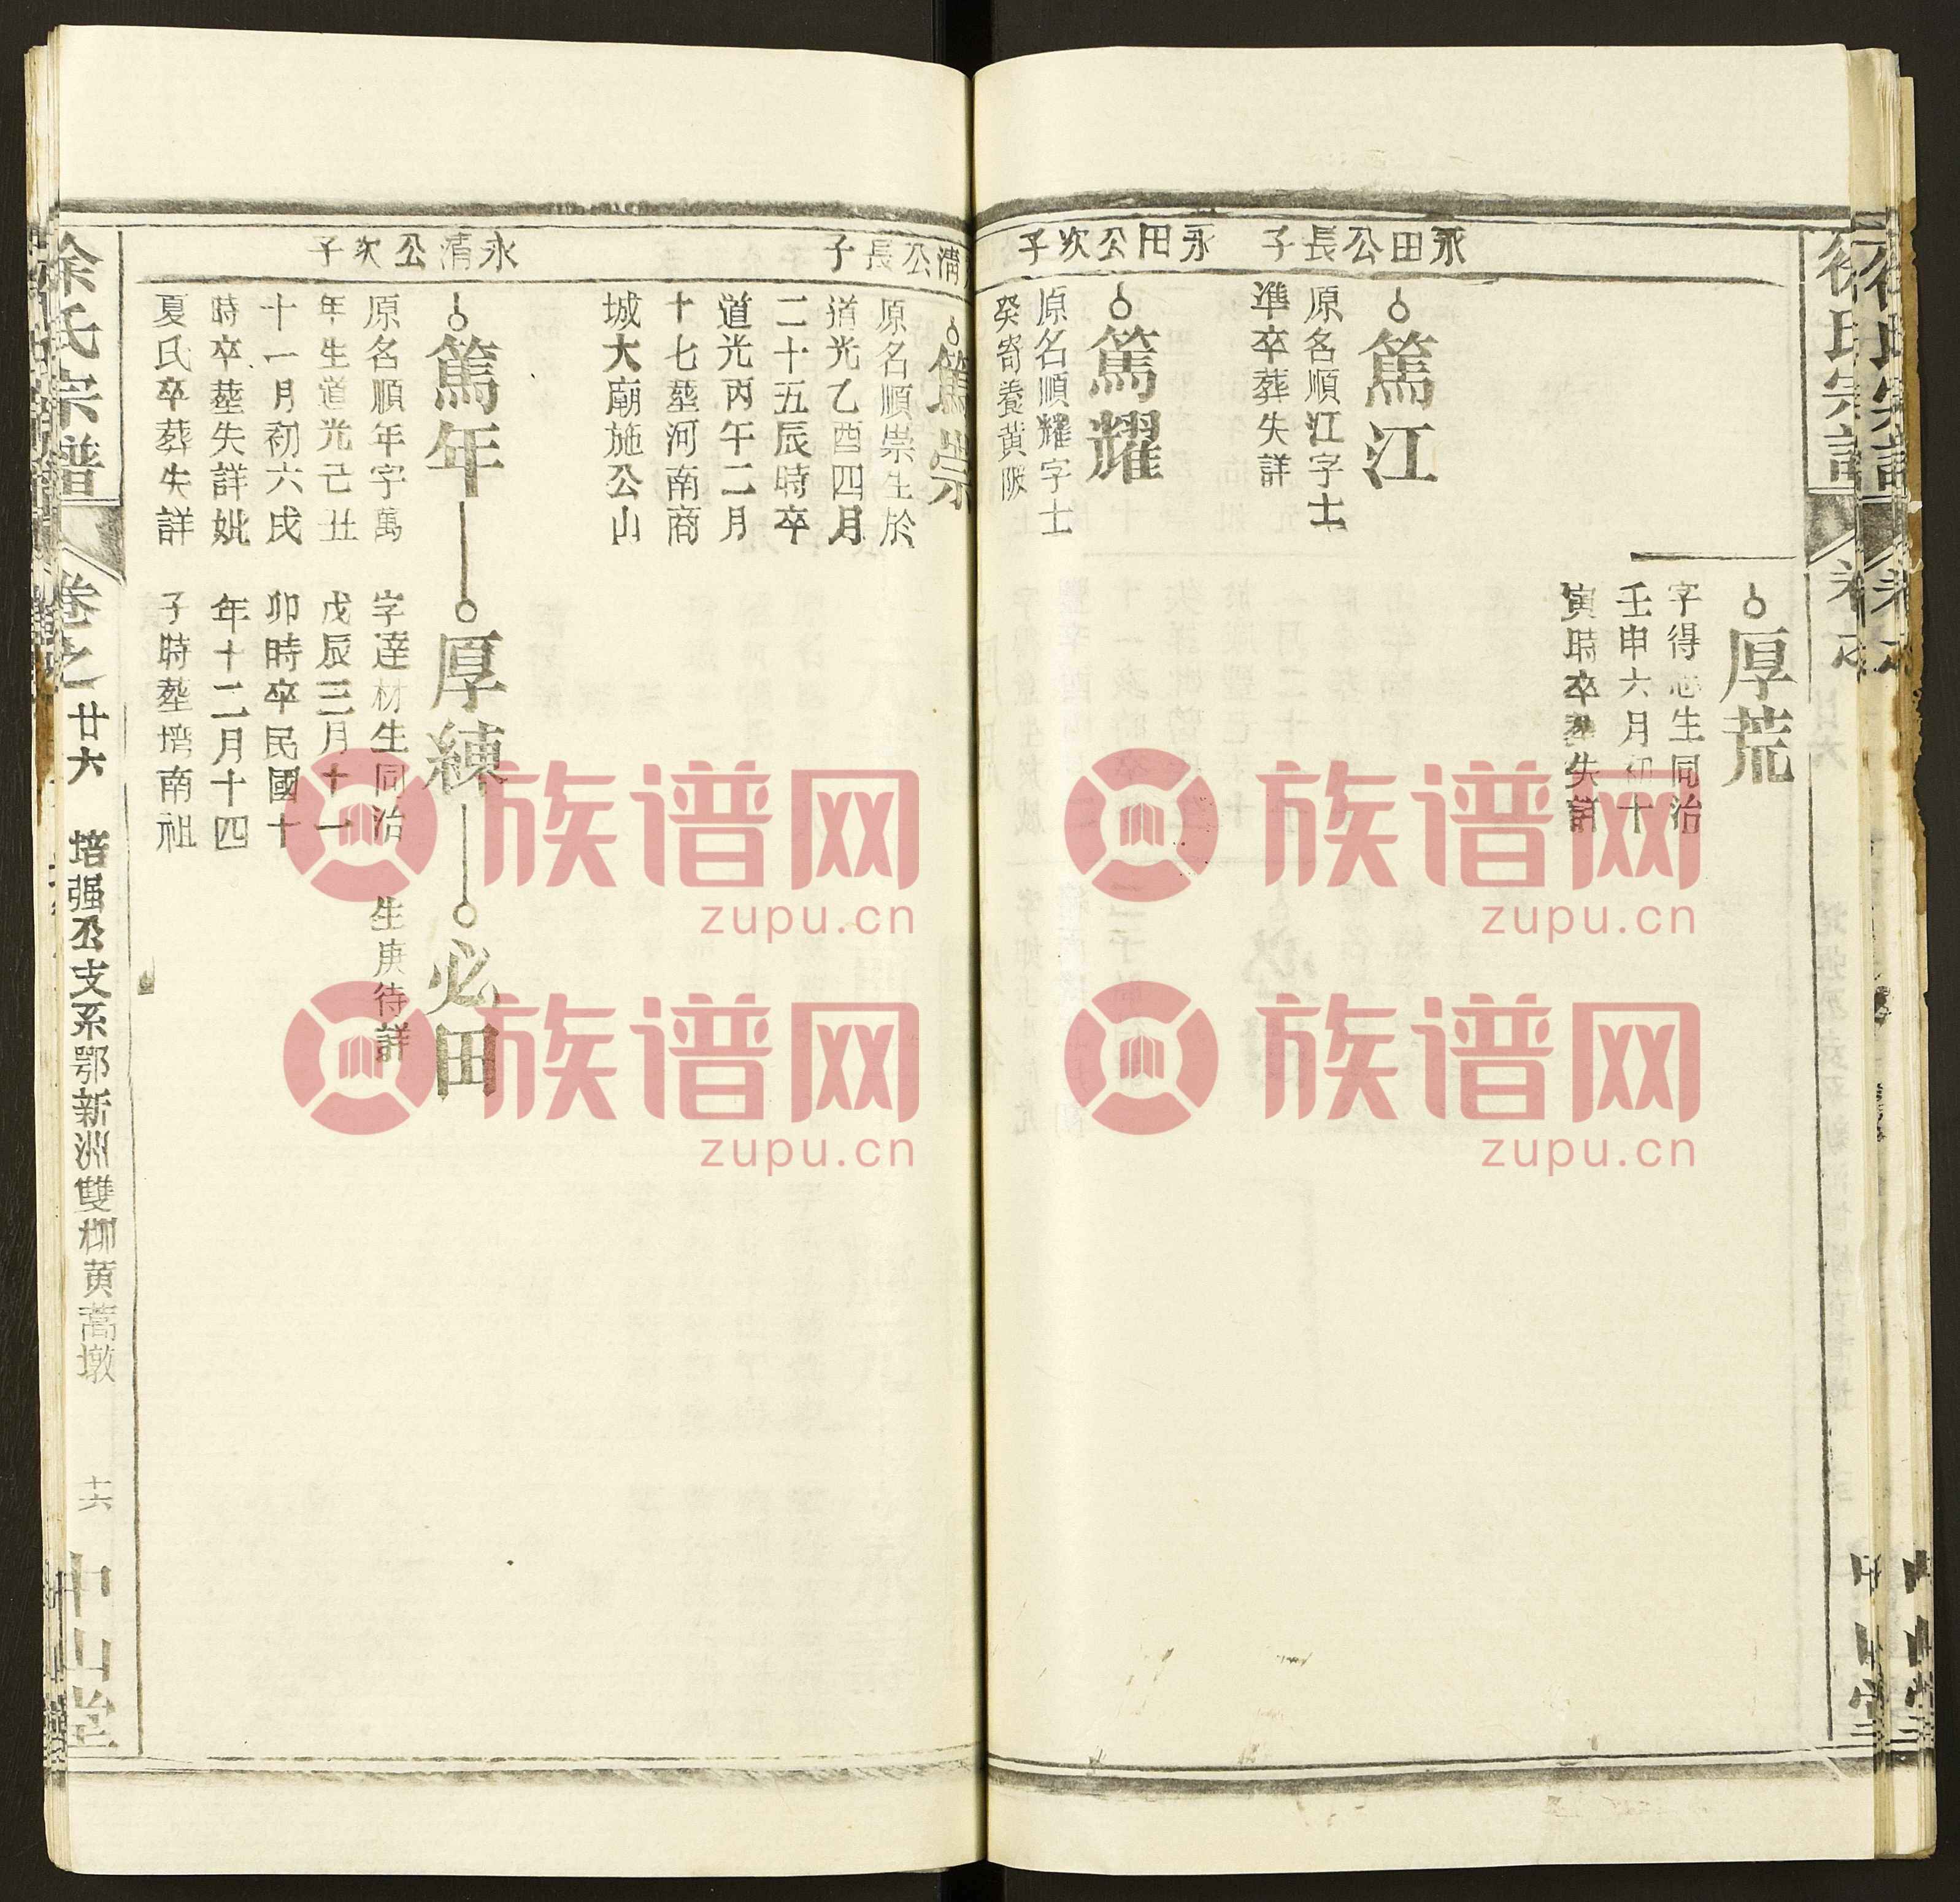 徐氏宗譜
厚荒
字得志生同治
壬申六月初十
寅時卒葬失詳
永田公長子
篤江
原名順江字士
準卒葬失詳
永田公次子
篤耀
原名順耀字士
癸寄養黃陂
清公長子
篤崇
原名順崇生於
道光乙酉四月
二十五辰時卒
道光丙午二月
十七塟河南商
城大廟施公山
永清公次子
篤年
原名順年字萬
年生道光己丑
十一月初六戌
時卒塟失詳妣
夏氏卒葬失詳
厚練
字達材生同治
戊辰三月十一
卯時卒民國十
年十二月十四
子時塟塆南祖
必田
生庚待詳
徐氏宗譜
卷之廿六
培强公支系鄂新洲雙柳黃蒿墩
十六
中山堂
族谱网
zupu.cn
族谱网
zupu.cn
族谱网
zupu.cn
族谱网
zupu.cn